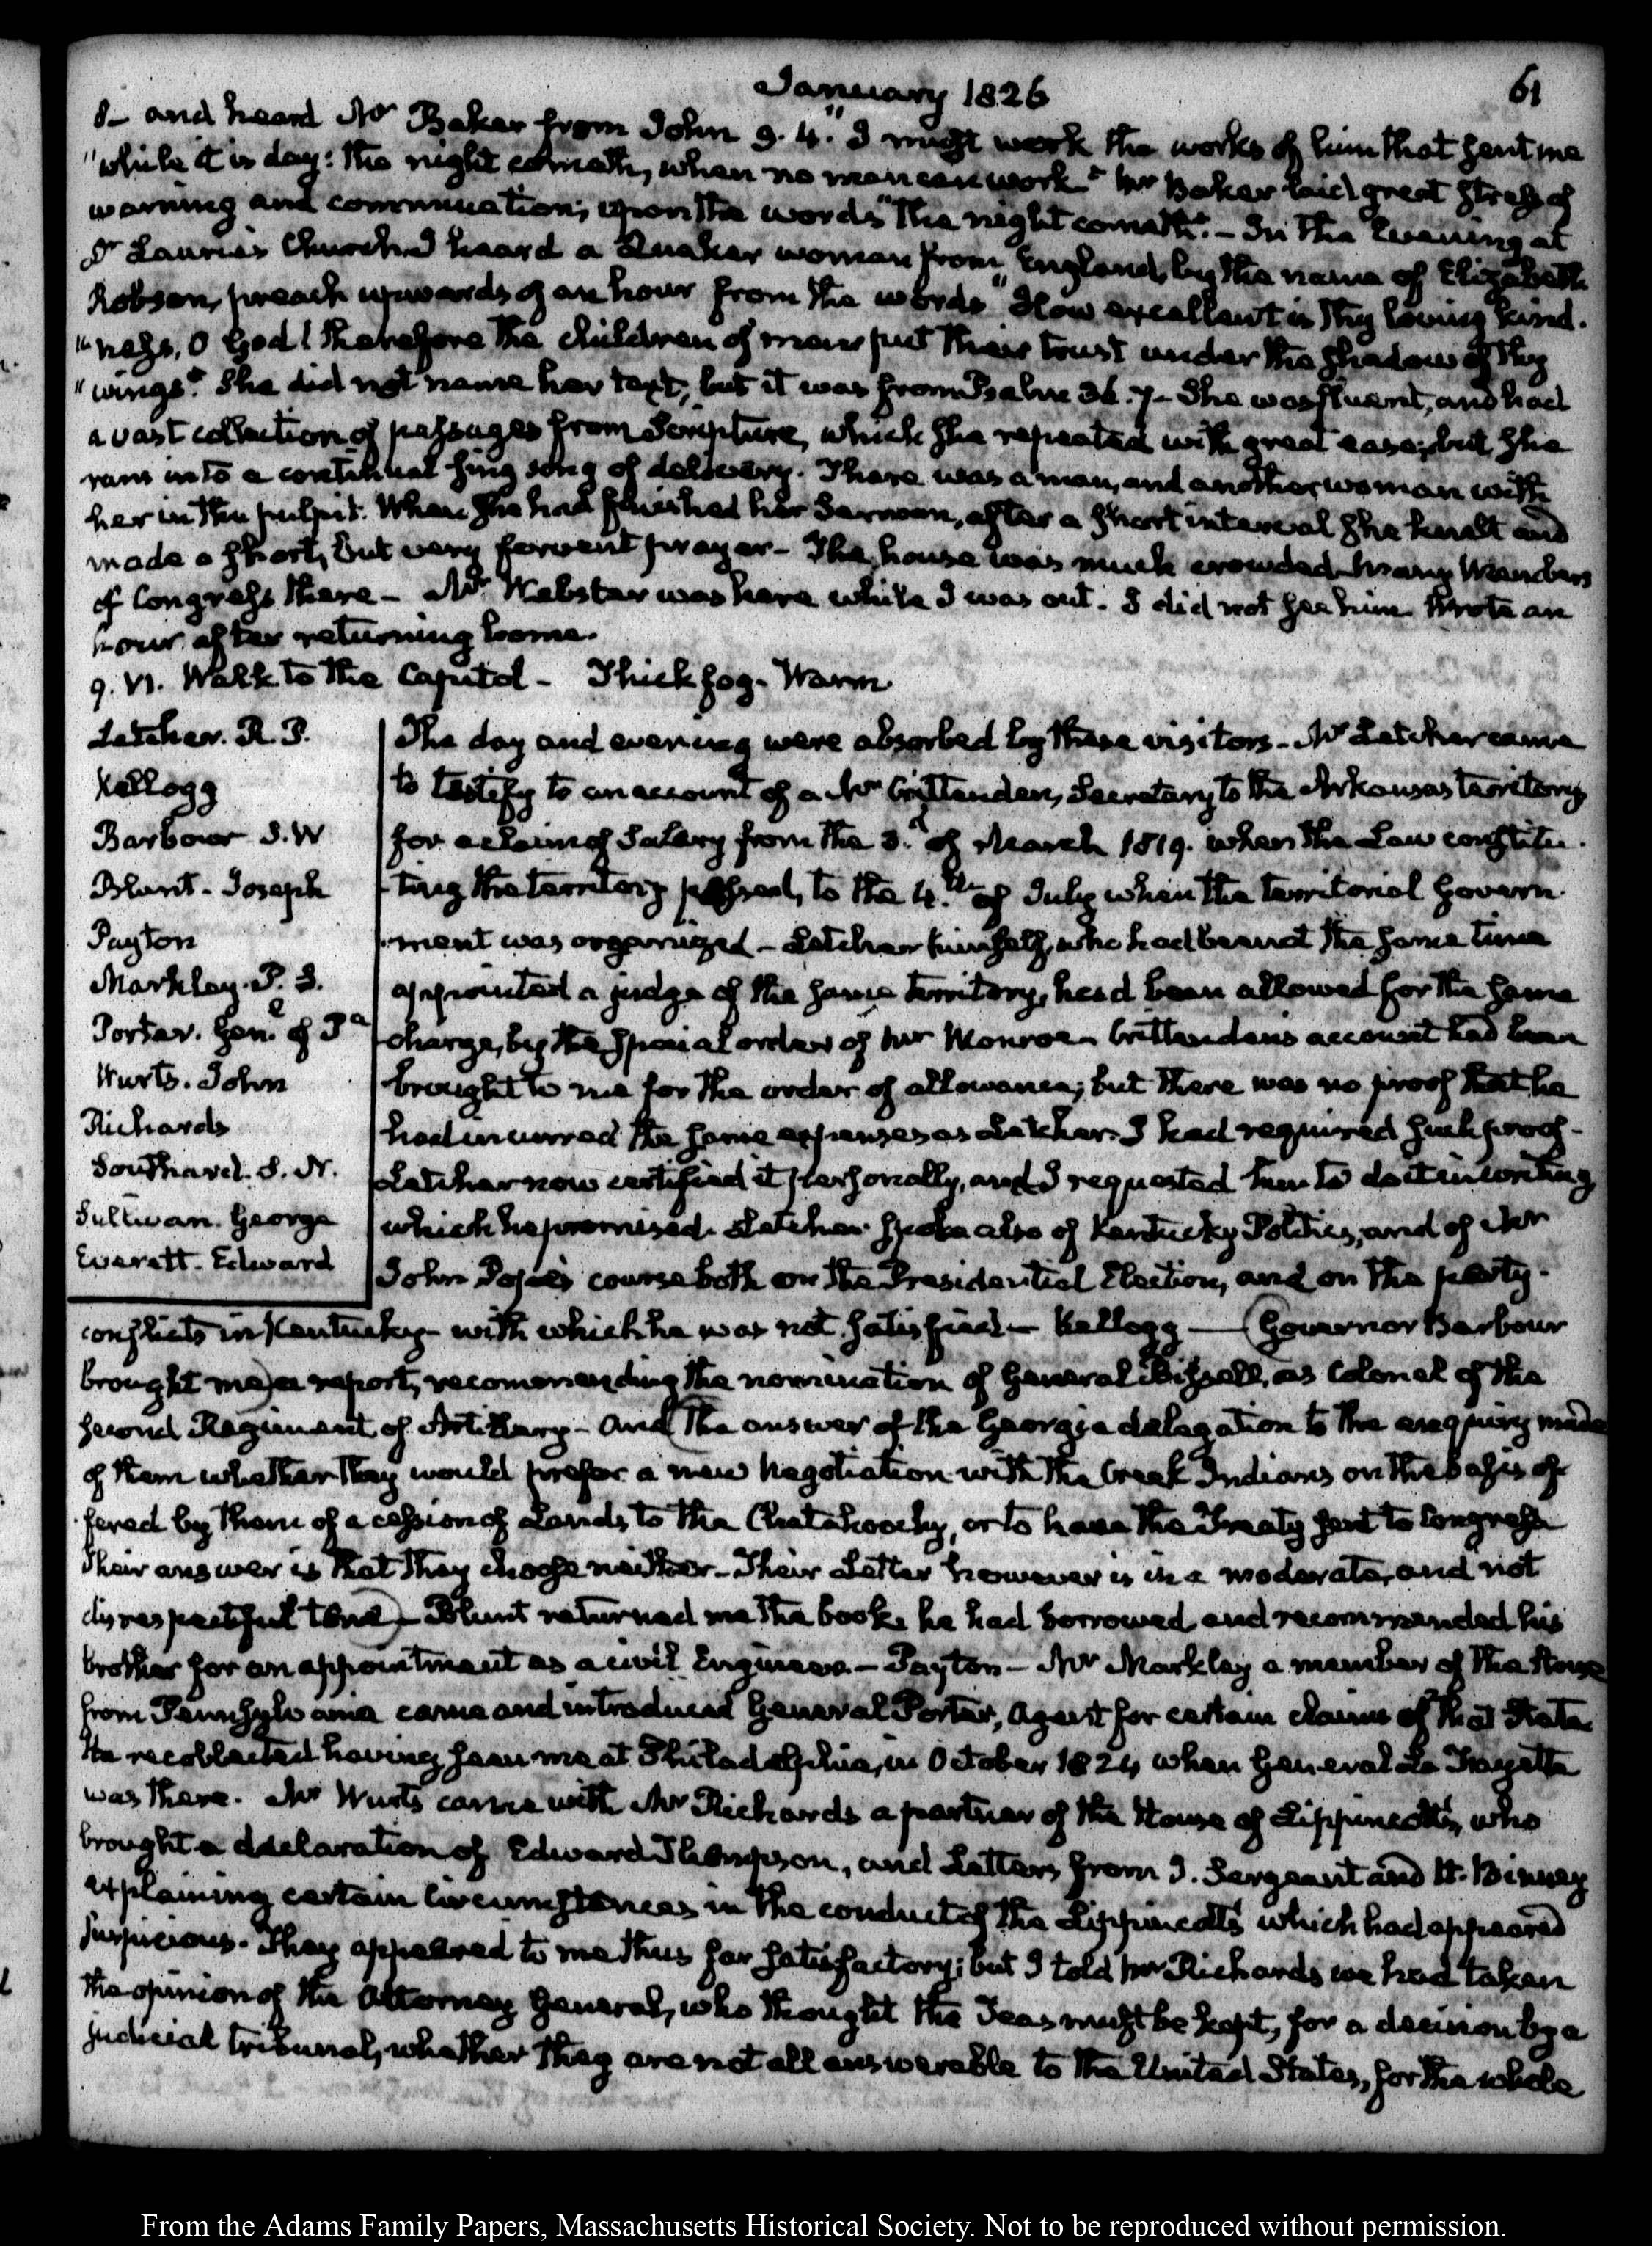 January 1826
61
8– and heard Mr Baker from John 9. 4. "I must work the works of him that sent me
"while it is day: the night cometh, when no man can work." Mr Baker laid great stress of
warning and commination, upon the words "the night cometh."– In the Evening at
Dr Laurie's Church I heard a Quaker woman from England, by the name of Elizabeth
Robson, preach upwards of an hour from the words "How excellent is thy loving kind.
"ness, O God! therefore the children of men put their trust under the shadow of thy
"wings." She did not name her text, but it was from Psalm 36. 7– She was fluent, and had
a vast collection of passages from Scripture, which she repeated with great ease; but she
ran into a continual sing song of delivery. There was a man, and another woman with
her in the pulpit. When she had finished her Sermon, after a short interval she knelt and
made a short, but very fervent prayer– The house was much crowded– many Members
of Congress there– Mr Webster was here while I was out. I did not see him. Wrote an
hour after returning home.
9. VI. Walk to the Capitol– Thick fog– Warm.
Letcher. R. P.
Kellogg
Barbour S. W
Blunt– Joseph
Payton
Markley. P. S.
Porter. Genl of Pa
Wurts. John
Richards
Southard. S. N.
Sullivan. George
Everett. Edward
The day and evening were absorbed by these visitors– Mr Letcher came
to testify to an account of a Mr Crittenden, Secretary to the Arkansas territory
for a claim of Salary from the 3d of March 1819. when the Law constitu.
ting the territory passed, to the 4.th of July when the territorial Govern.
ment was organized– Letcher himself, who had been at the same time
appointed a judge of the same territory, had been allowed for the same
charge, by the special order of Mr Monroe– Crittenden's account had been
brought to me for the order of allowance; but there was no proof that he
had incurred the same expenses as Letcher. I had required such proof–
Letcher now certified it personally, and I requested him to do it in writing
which he promised. Letcher spoke also of Kentucky Politics, and of Mr
John Pope's course both on the Presidential Election, and on the party–
conflicts in Kentucky– with which he was not satisfied– Kellogg — (Governor Barbour
brought me) a report, recommending the nomination of General Bissell, as Colonel of the
second Regiment of Artillery– and (the answer of the Georgia delegation to the enquiry made
of them whether they would prefer a new Negotiation with the Creek Indians on the basis of
fered by them of a cession of Lands to the Chatahoochy, or to have the Treaty sent to Congress
Their answer is that they choose neither– Their Letter however is in a moderate, and not
disrespectful tone)– Blunt returned me the book he had borrowed and recommended his
brother for an appointment as a civil Engineer.– Payton– Mr Markley a member of the House
from Pennsylvania came and introduced General Porter, Agent for certain claims of that State.
He recollected having seen me at Philadelphia, in October 1824 when General La Fayette
was there. Mr Wurts came with Mr Richards a partner of the House of Lippincotts, who
brought a declaration of Edward Thompson, and Letters from J. Sergeant and H. Binney
explaining certain circumstances in the conduct of the Lippincotts which had appeared
suspicious. They appeared to me thus far satisfactory; but I told Mr Richards we had taken
the opinion of the Attorney General, who thought the Teas must be kept, for a decision by a
judicial tribunal, whether they are not all answerable to the United States, for the whole
From the Adams Family Papers, Massachusetts Historical Society. Not to be reproduced without permission.